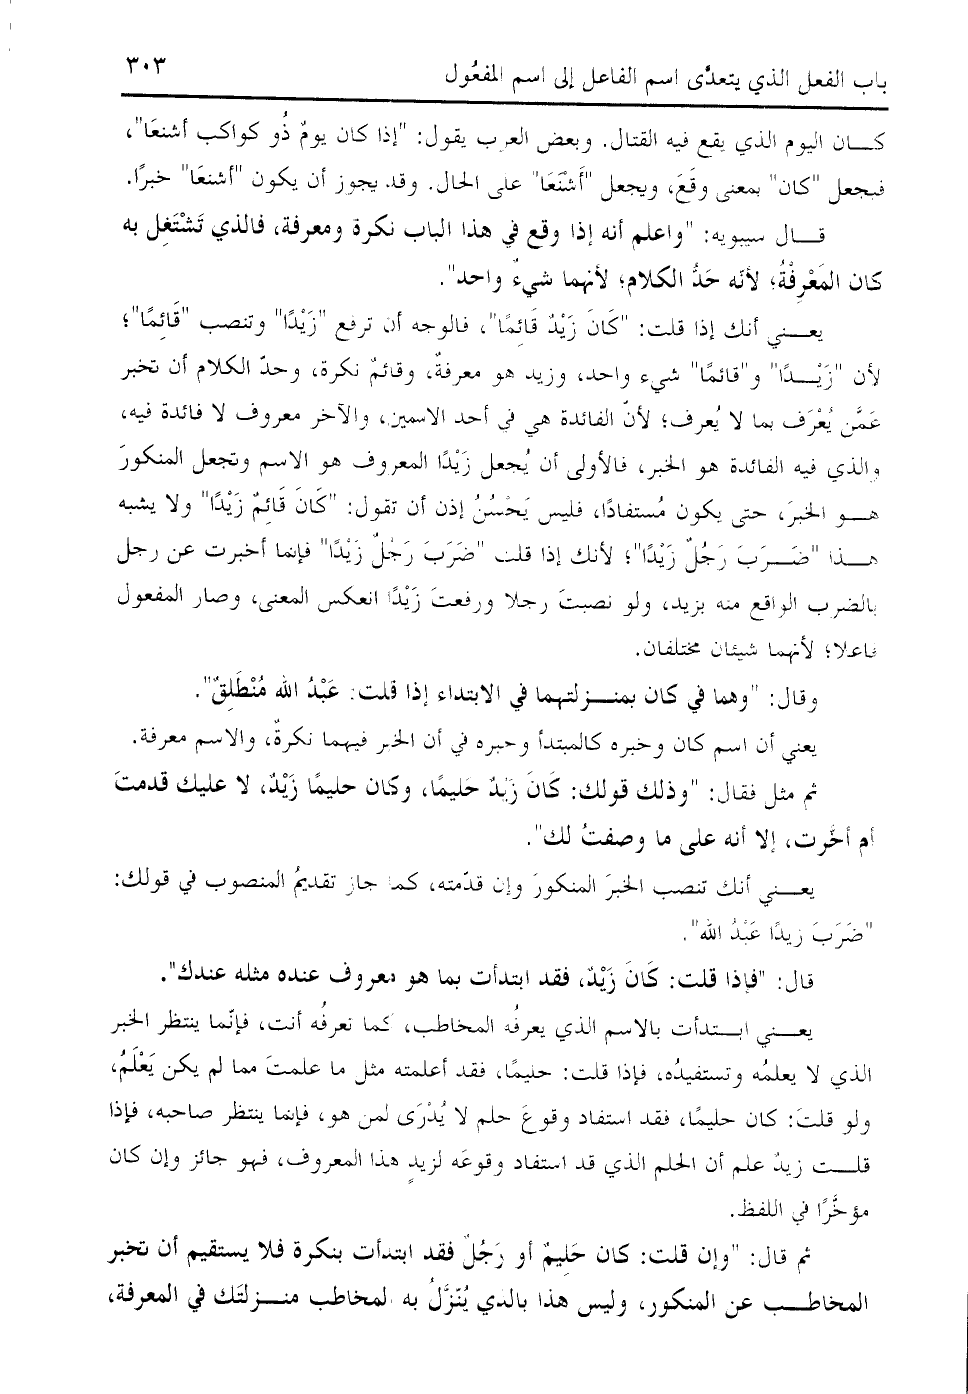 باب الفعل الذي يتعدَّى اسم الفاعل إلى اسم المفعُول ٣٠٣
كـــان اليوم الذي يقع فيه القتال. وبعض العرب يقول: "إذا كان يومٌ ذُو كواكب أشنعَا"،
فيجعل "كان" بمعنى وقَعَ، ويجعل "أَشْنَعَا" على الحال. وقد يجوز أن يكون "أشنعَا" خبرًا.
قـــال سيبويه: "واعلم أنه إذا وقع في هذا الباب نكرة ومعرفة، فالذي تَشْتَغِل به
كان المَعْرِفْةُ؛ لأنّه حَدُّ الكلام؛ لأنهما شيءٌ واحد".
يعـــني أنك إذا قلت: "كَانَ زَيْدٌ قَائِمًا"، فالوجه أن ترفع "زَيْدًا" وتنصب "قَائِمًا"؛
لأن "زَيْـــدًا" و"قائمًا" شيء واحد، وزيد هو معرفةٌ، وقائمٌ نكرة، وحدّ الكلام أن تخبر
عَمَّن يُعْرَف بما لا يُعرف؛ لأنّ الفائدة هي في أحد الاسمين، والآخر معروف لا فائدة فيه،
والذي فيه الفائدة هو الخبر، فالأولى أن يُجعل زَيْدًا المعروف هو الاسم وتجعل المنكورَ
هـــو الخبرَ، حتى يكون مُستفادًا، فليس يَحْسُنُ إذن أن تقول: "كَانَ قَائِمٌ زَيْدًا" ولا يشبه
هـــذا "ضَـــرَبَ رَجُلٌ زَيْدًا"؛ لأنك إذا قلت "ضَرَبَ رَجُلٌ زَيْدًا" فإنما أخبرت عن رجل
بالضرب الواقع منه بزيد، ولو نصبتَ رجلا ورفعتَ زَيْدًا انعكس المعنى، وصار المفعول
فاعلا؛ لأنهما شيئان مختلفان.
وقال: "وهما في كان بمنـــزلتهما في الابتداء إذا قلت: عَبْدُ الله مُنْطَلِقٌ".
يعني أن اسم كان وخبره كالمبتدأ وخبره في أن الخبر فيهما نكرةٌ، والاسم معرفة.
ثم مثل فقال: "وذلك قولك: كَانَ زَيْدٌ حَليمًا، وكان حليمًا زَيْدٌ، لا عليك قدمتَ
أم أخَّرت، إلا أنه على ما وصفتُ لك".
يعـــني أنك تنصب الخبرَ المنكورَ وإن قدّمته، كما جاز تقديمُ المنصوب في قولك:
"ضَرَبَ زيدًا عَبْدُ الله".
قال: "فإذا قلت: كَانَ زَيْدٌ، فقد ابتدأت بما هو معروف عنده مثله عندك".
يعـــني ابـــتدأت بالاسم الذي يعرفُه المخاطب، كما تعرفُه أنت، فإنّما ينتظر الخبر
الذي لا يعلمُه وتستفيدُه، فإذا قلت: حليمًا، فقد أعلمته مثل ما علمتَ مما لم يكن يَعْلَمُ،
ولو قلتَ: كان حليمًا، فقد استفاد وقوعَ حلم لا يُدْرَى لمن هو، فإنما ينتظر صاحبه، فإذا
قلـــت زيدٌ علم أن الحلم الذي قد استفاد وقوعَه لزيدٍ هذا المعروف، فهو جائز وإن كان
مؤخَّرًا في اللفظ.
ثم قال: "وإن قلت: كان حَلِيمٌ أو رَجُلٌ فقد ابتدأت بنكرة فلا يستقيم أن تخبر
المخاطـــب عن المنكور، وليس هذا بالذي يُنَزَّلُ به المخاطب منـــزلتَك في المعرفة،